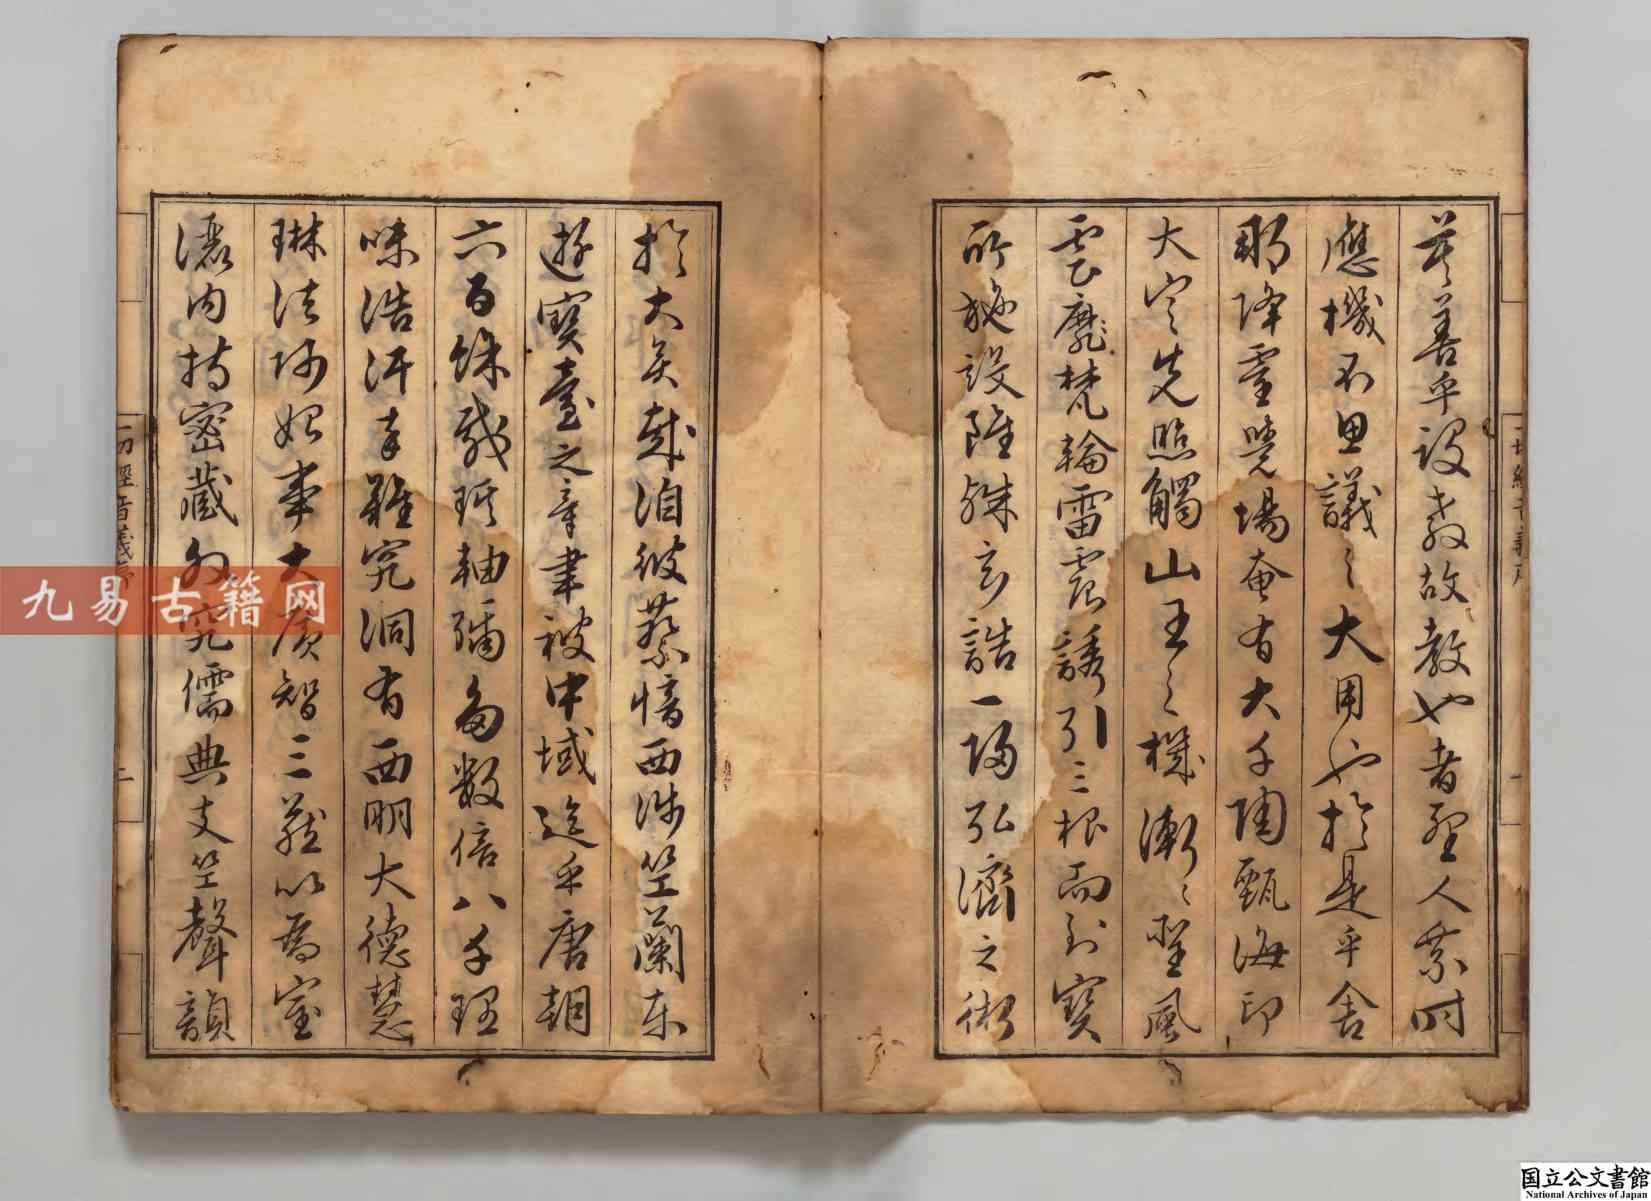 莫善乎設教故教也者聖人乘時
應機不思議々大用也於是乎舍
那降靈覺場奄有大千陶甄海印
大定先照觸山王之機漸々風
雲靡梵輪雷震誘引三根而到寶
所施設雖殊玄誥一歸弘濟之術
一切經音義序 一
於大矣哉洎彼蔡愔西涉竺蘭東
遊寶臺之章聿被中域迄乎唐朝
六百餘載琅軸彌多數倍八千理
味浩汗卒難究洞有西明大德慧
琳法師始事大廣智三藏以為室
灑内持密藏外究儒典支竺聲韻
一切經音義序 二
九易古籍网
国立公文書館
National Archives of Japan